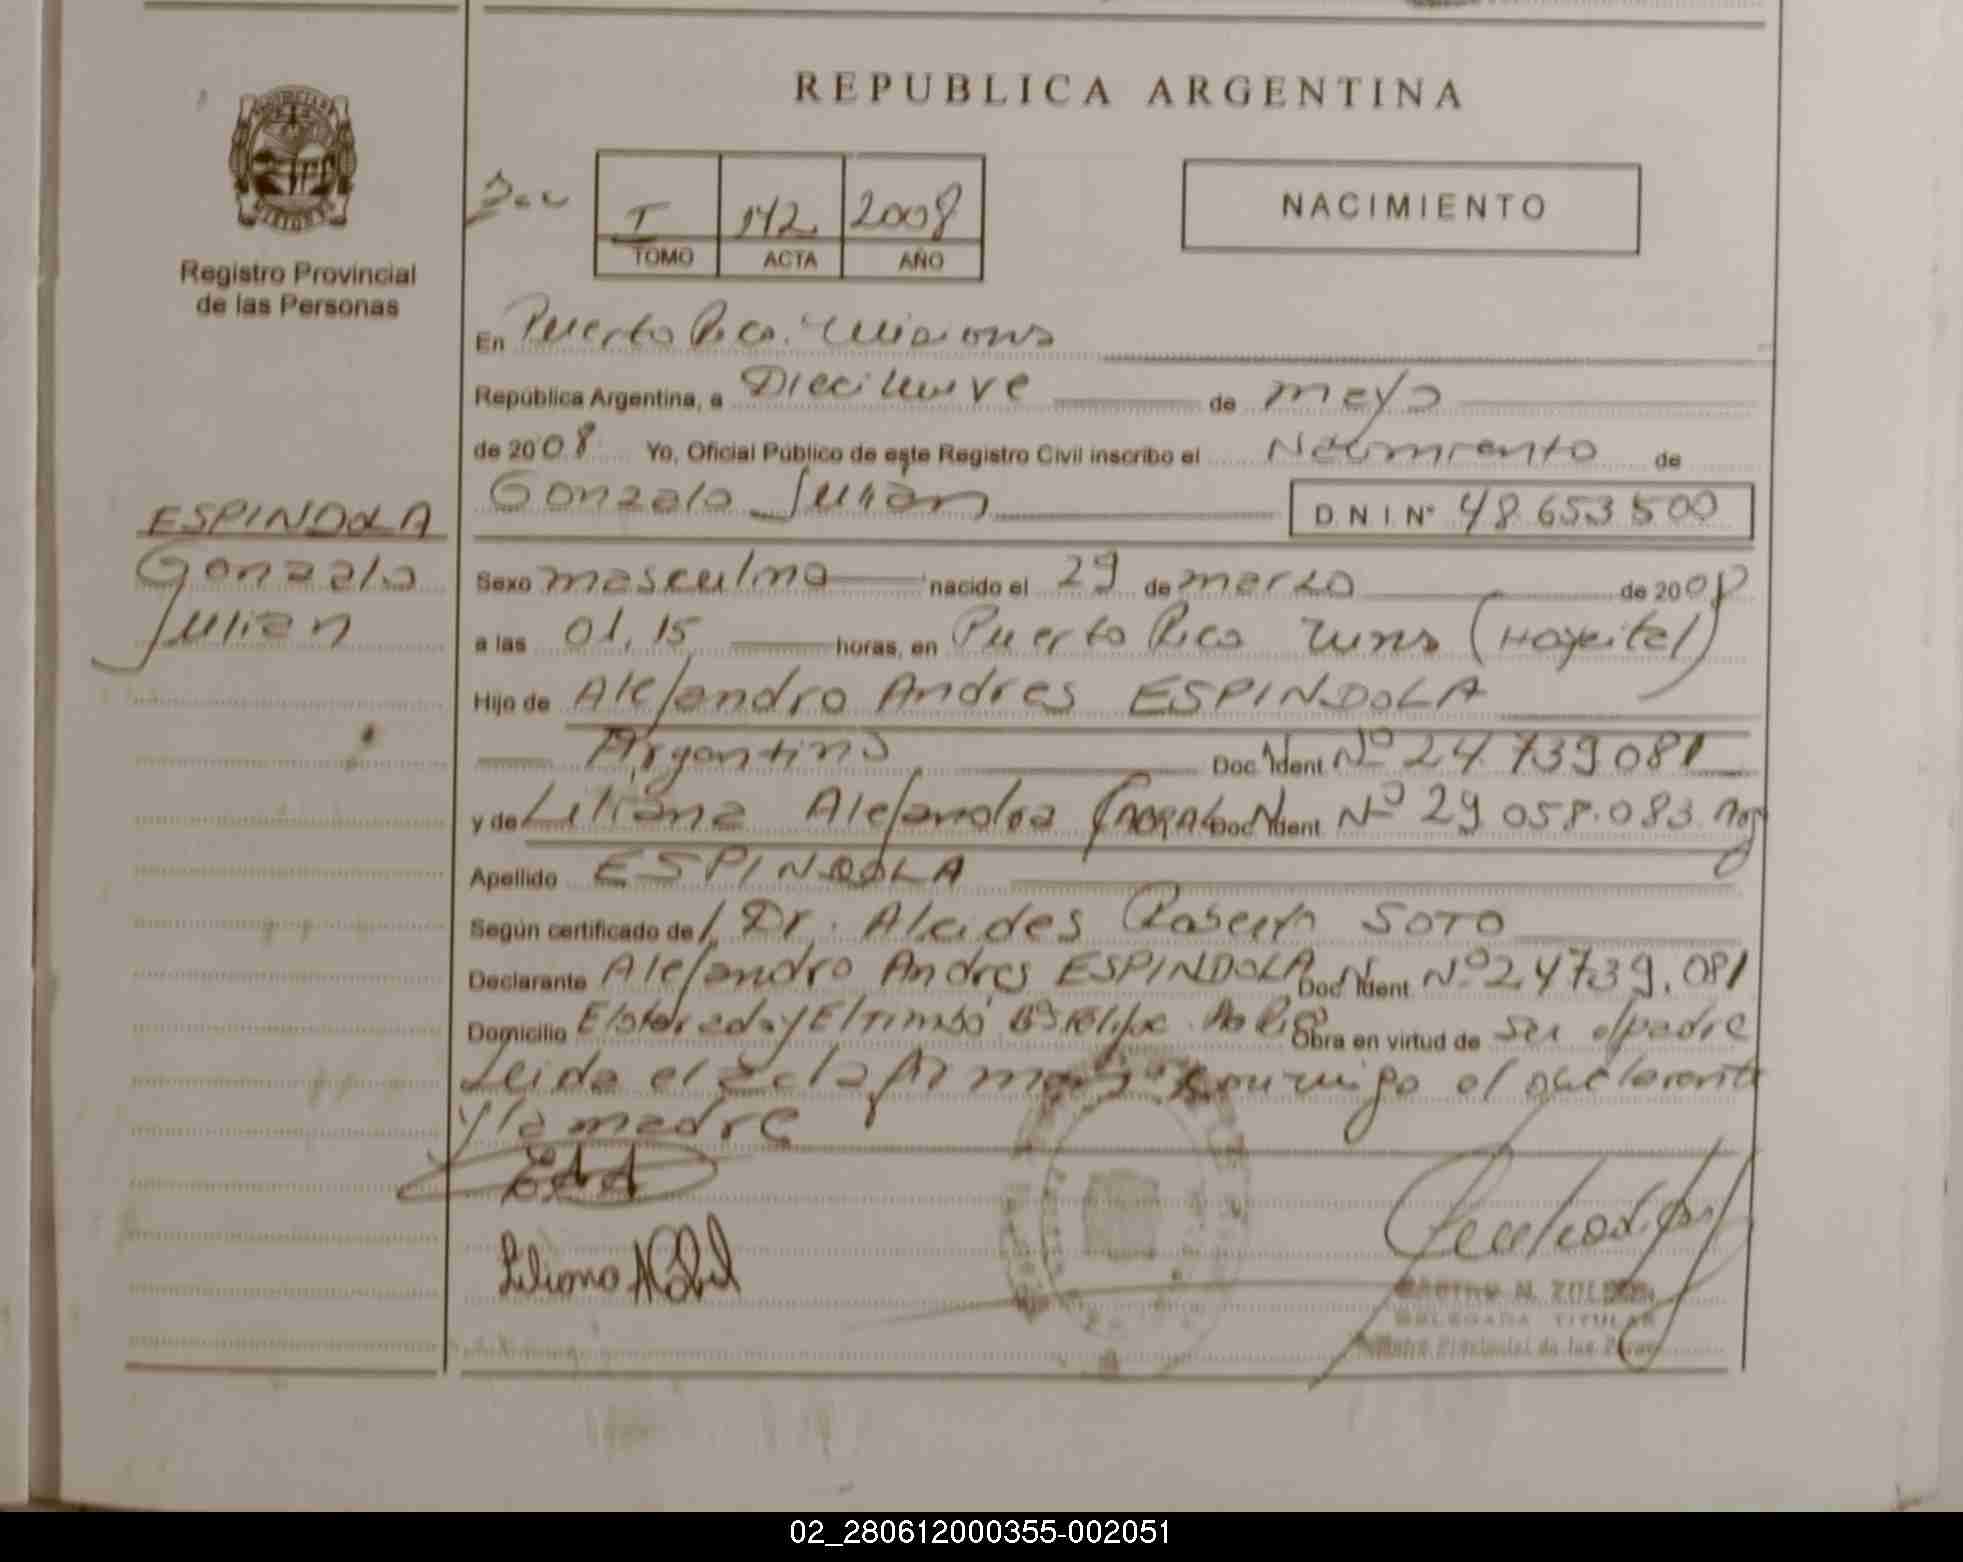 REPUBLICA ARGENTINA
Registro Provincial
de las Personas
I 142 2008
TOMO ACTA AÑO
NACIMIENTO
En Puerto Rico. Misiones
República Argentina, a Diecinueve de mayo
de 2008 Yo, Oficial Público de este Registro Civil inscribo el Nacimiento de
Gonzalo Julián D N I Nº 48.653.500
ESPINDOLA
Gonzalo
Julian
Sexo masculino nacido el 29 de marzo de 2008
a las 01,15 horas, en Puerto Rico (Hospital)
Hijo de Alejandro Andres ESPINDOLA
Argentino Doc Ident Nº 24.739.081
y de Liliana Alejandra Doc Ident Nº 29.058.083
Apellido ESPINDOLA
Según certificado de Dr. Alcides Roberto SOTO
Declarante Alejandro Andres ESPINDOLA Doc Ident Nº 24.739.081
Domicilio Eldorado y El Timbó Obra en virtud de ser el padre
Leida el acta firman conmigo el declarante
y la madre
EAA
Liliana
DELEGADA TITULAR
Provincial de las
02_280612000355-002051